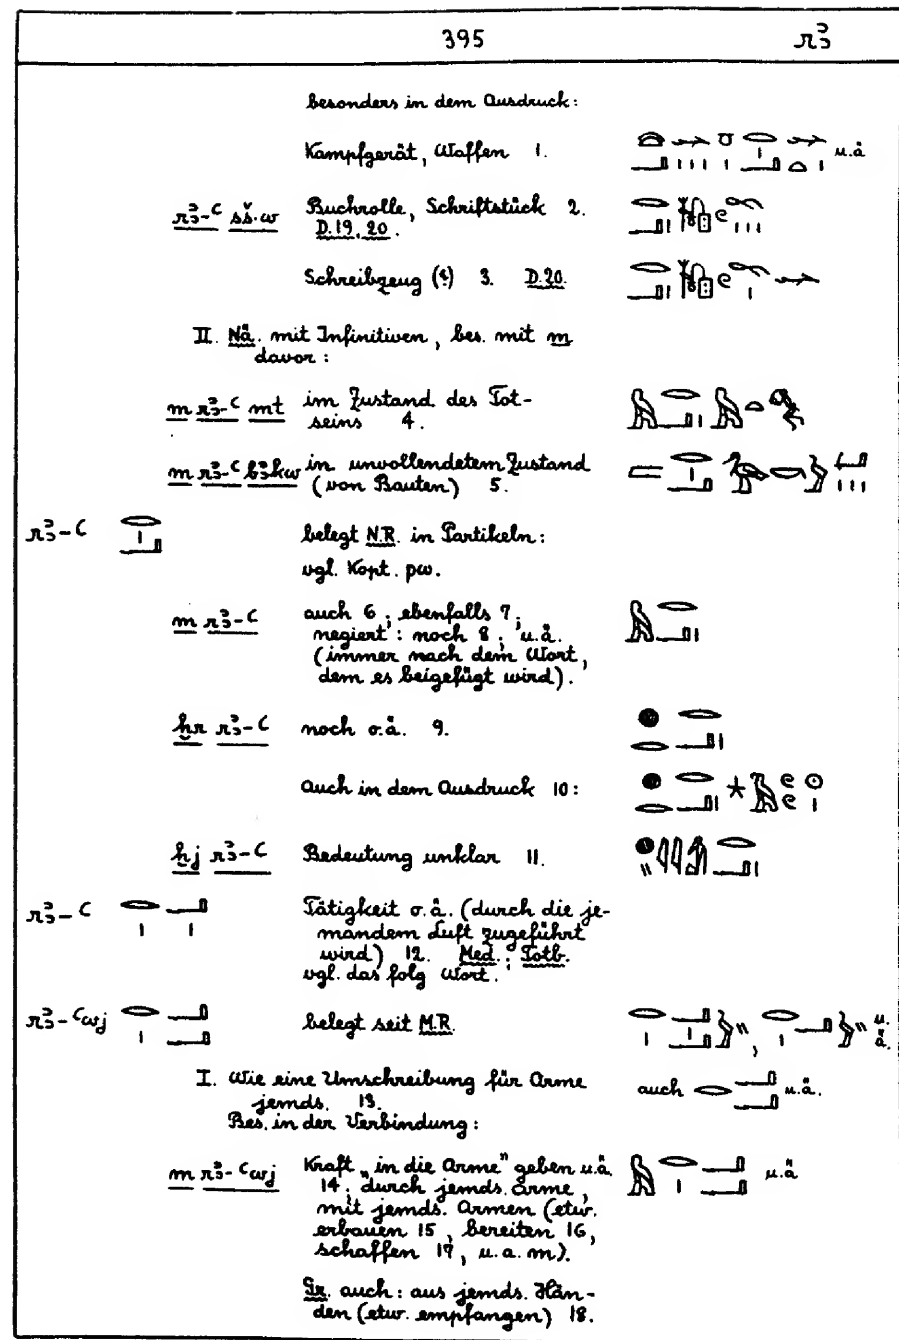 395 rꜣ
besonders in dem Ausdruck:
Kampfgerät, Waffen 1. u.ä
rꜣ-ꜥ sš.w Buchrolle, Schriftstück 2.
D.19, 20.
Schreibzeug (?) 3. D.20.
II. Nä. mit Infinitiven, bes. mit m
davor:
m rꜣ-ꜥ mt im Zustand des Tot-
seins 4.
m rꜣ-ꜥ bꜣkw in unvollendetem Zustand
(von Bauten) 5.
rꜣ-ꜥ belegt N.R. in Partikeln:
vgl. Kopt. ⲣⲱ.
m rꜣ-ꜥ auch 6; ebenfalls 7;
negiert: noch 8; u.ä.
(immer nach dem Wort,
dem es beigefügt wird).
ḫr rꜣ-ꜥ noch o.ä. 9.
Auch in dem Ausdruck 10:
ḫj rꜣ-ꜥ Bedeutung unklar 11.
rꜣ-ꜥ Tätigkeit o.ä. (durch die je-
mandem Luft zugeführt
wird) 12. Med.; Totb.
vgl. das folg Wort.
rꜣ-ꜥwj belegt seit M.R. u.ä.
I. Wie eine Umschreibung für Arme auch u.ä.
jemds. 13.
Bes. in der Verbindung:
m rꜣ-ꜥwj Kraft „in die Arme" geben u.ä. u.ä
14; durch jemds. Arme,
mit jemds. Armen (etw.
erbauen 15, bereiten 16,
schaffen 17, u.a.m).
Gr. auch: aus jemds. Hän-
den (etw. empfangen) 18.